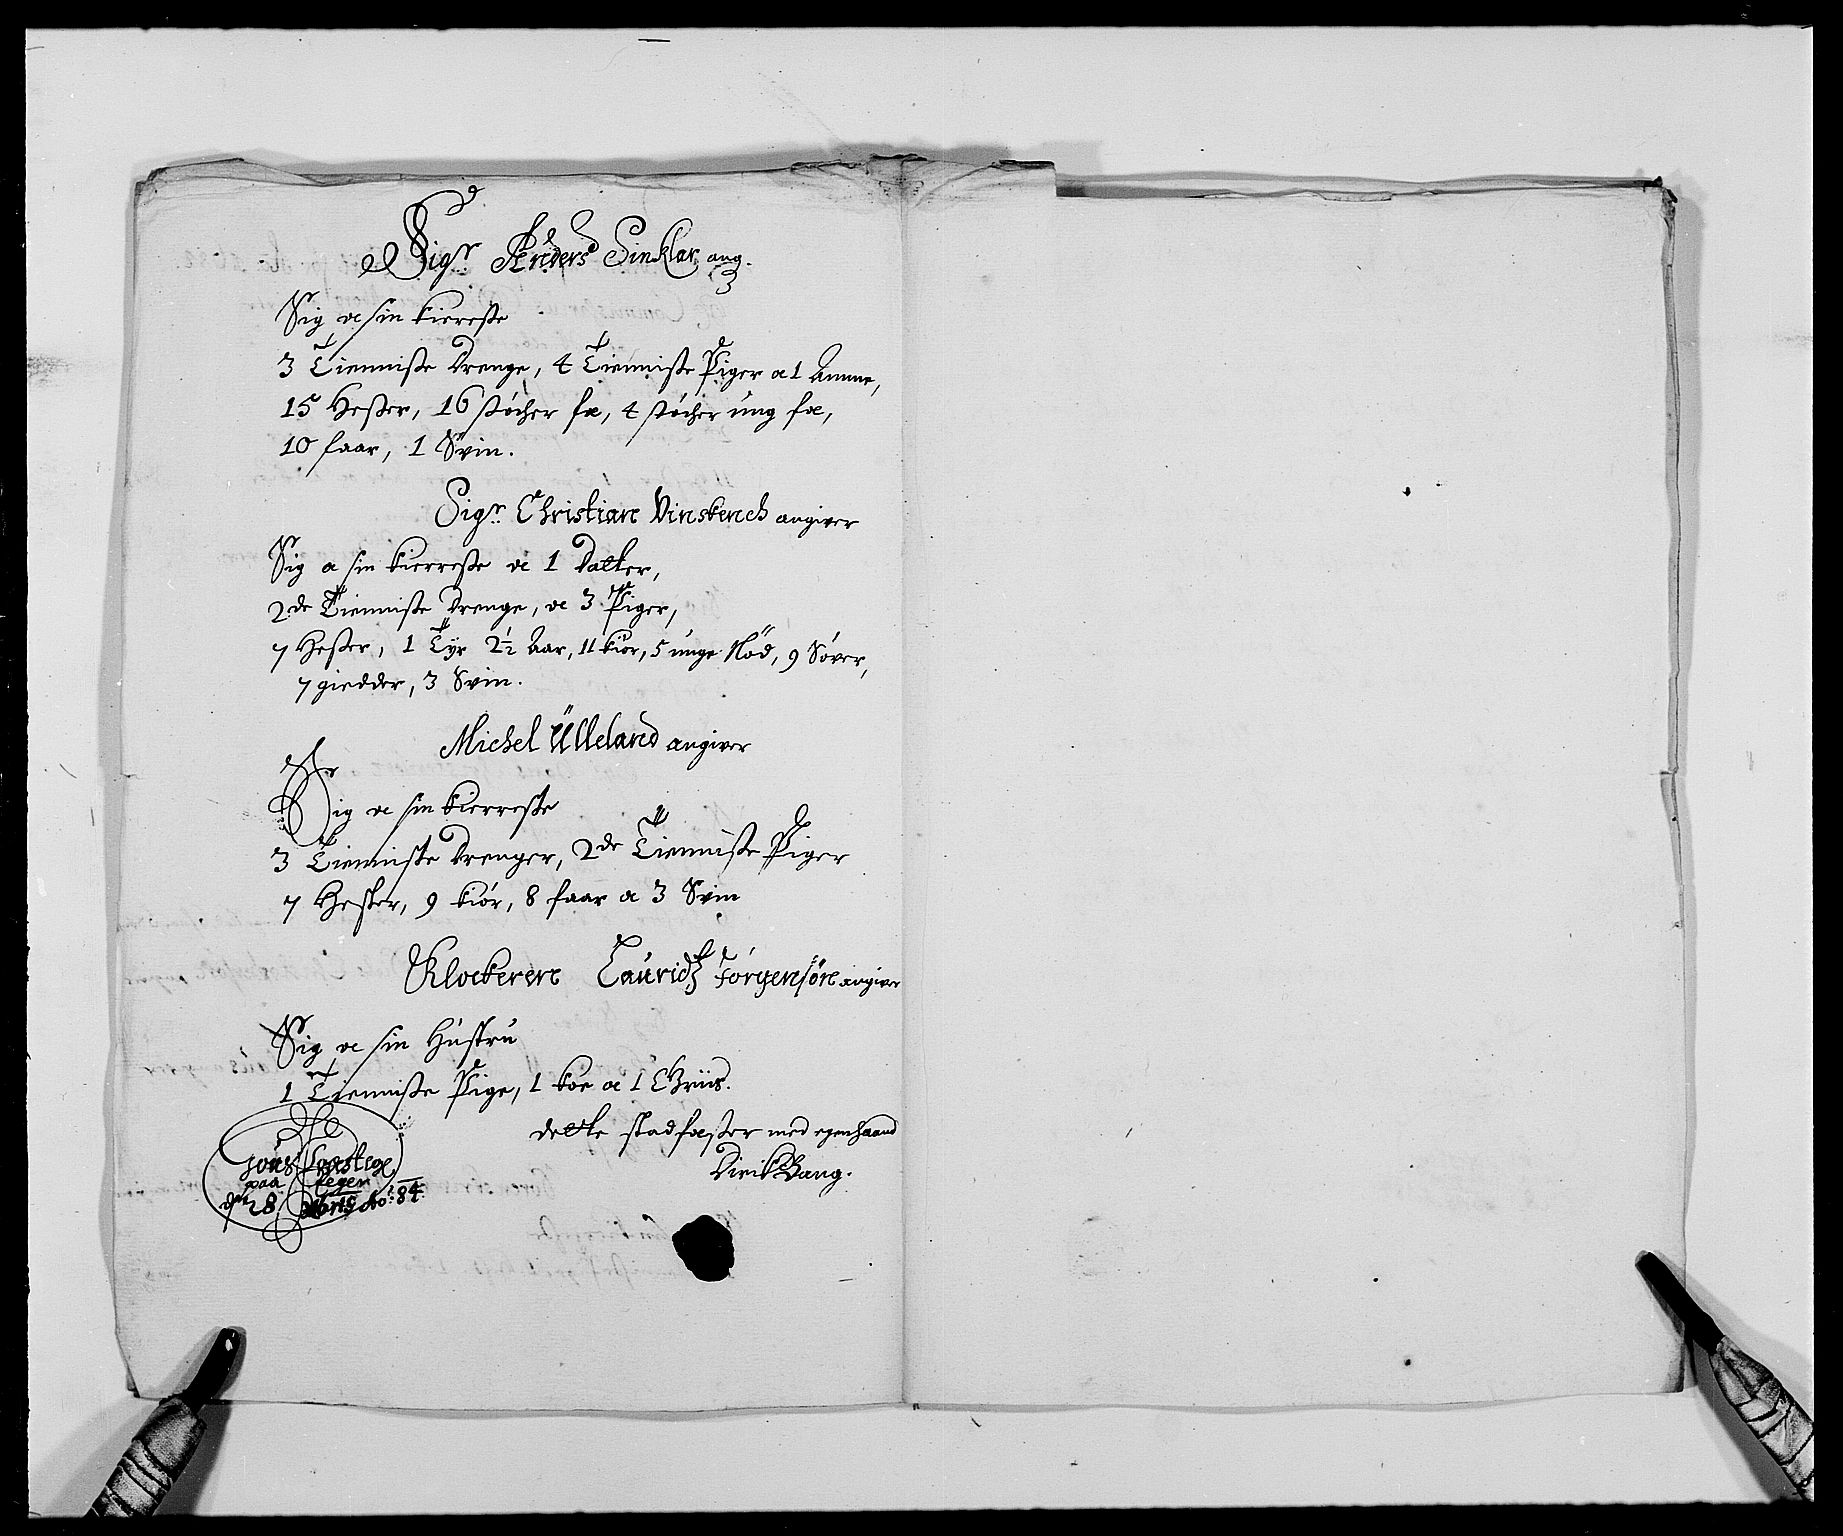 Sigr Anders Sinklar ang.
Sig oc sin kiereste
3 Tienniste Drenge, 4 Tienniste Piger oc 1 Amme,
15 Hester, 16 støcher fæ, 4 støcher ung fæ,
10 faar, 1 Svin.
Sigr. Christian Vinstench angiver
Sig oc sin kierreste oc 1 Datter,
2de Tienniste Drenge, oc 3 Piger,
7 Hester, 1 Tyr 2½ Aar, 11 kiør, 5 unge Nød, 9 Søver,
7 giedder, 3 Svin.
Michel Ülleland angiver
Sig oc sin kierreste
3 Tienniste Drenger, 2de Tienniste Piger
7 Hester, 9 kiør, 8 faar oc 3 Svin
Klockeren Lauridtz Jørgensøn angiver
Sig oc sin Hústrú
1 Tienniste Pige, 1 koe oc 1 Griis.
dette stadfæster med egen haand
Dirik Bang.
paa
dn 28 Ao: 84